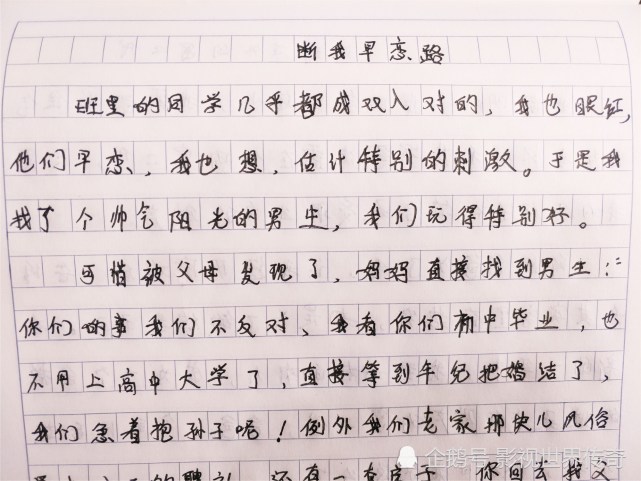 断我早恋路
班里的同学几乎都成双入对的，我也眼红，
他们早恋，我也想，估计特别的刺激。于是我
找了个帅气阳光的男生，我们玩得特别好。
可惜被父母发现了，妈妈直接找到男生：“
你们的事我们不反对、我看你们初中毕业，也
不用上高中大学了，直接等到年纪把婚结了，
我们急着抱孙子呢！例外我们老家那块儿风俗
还有一套房子 你回去找父
企鹅号 影视世界传奇